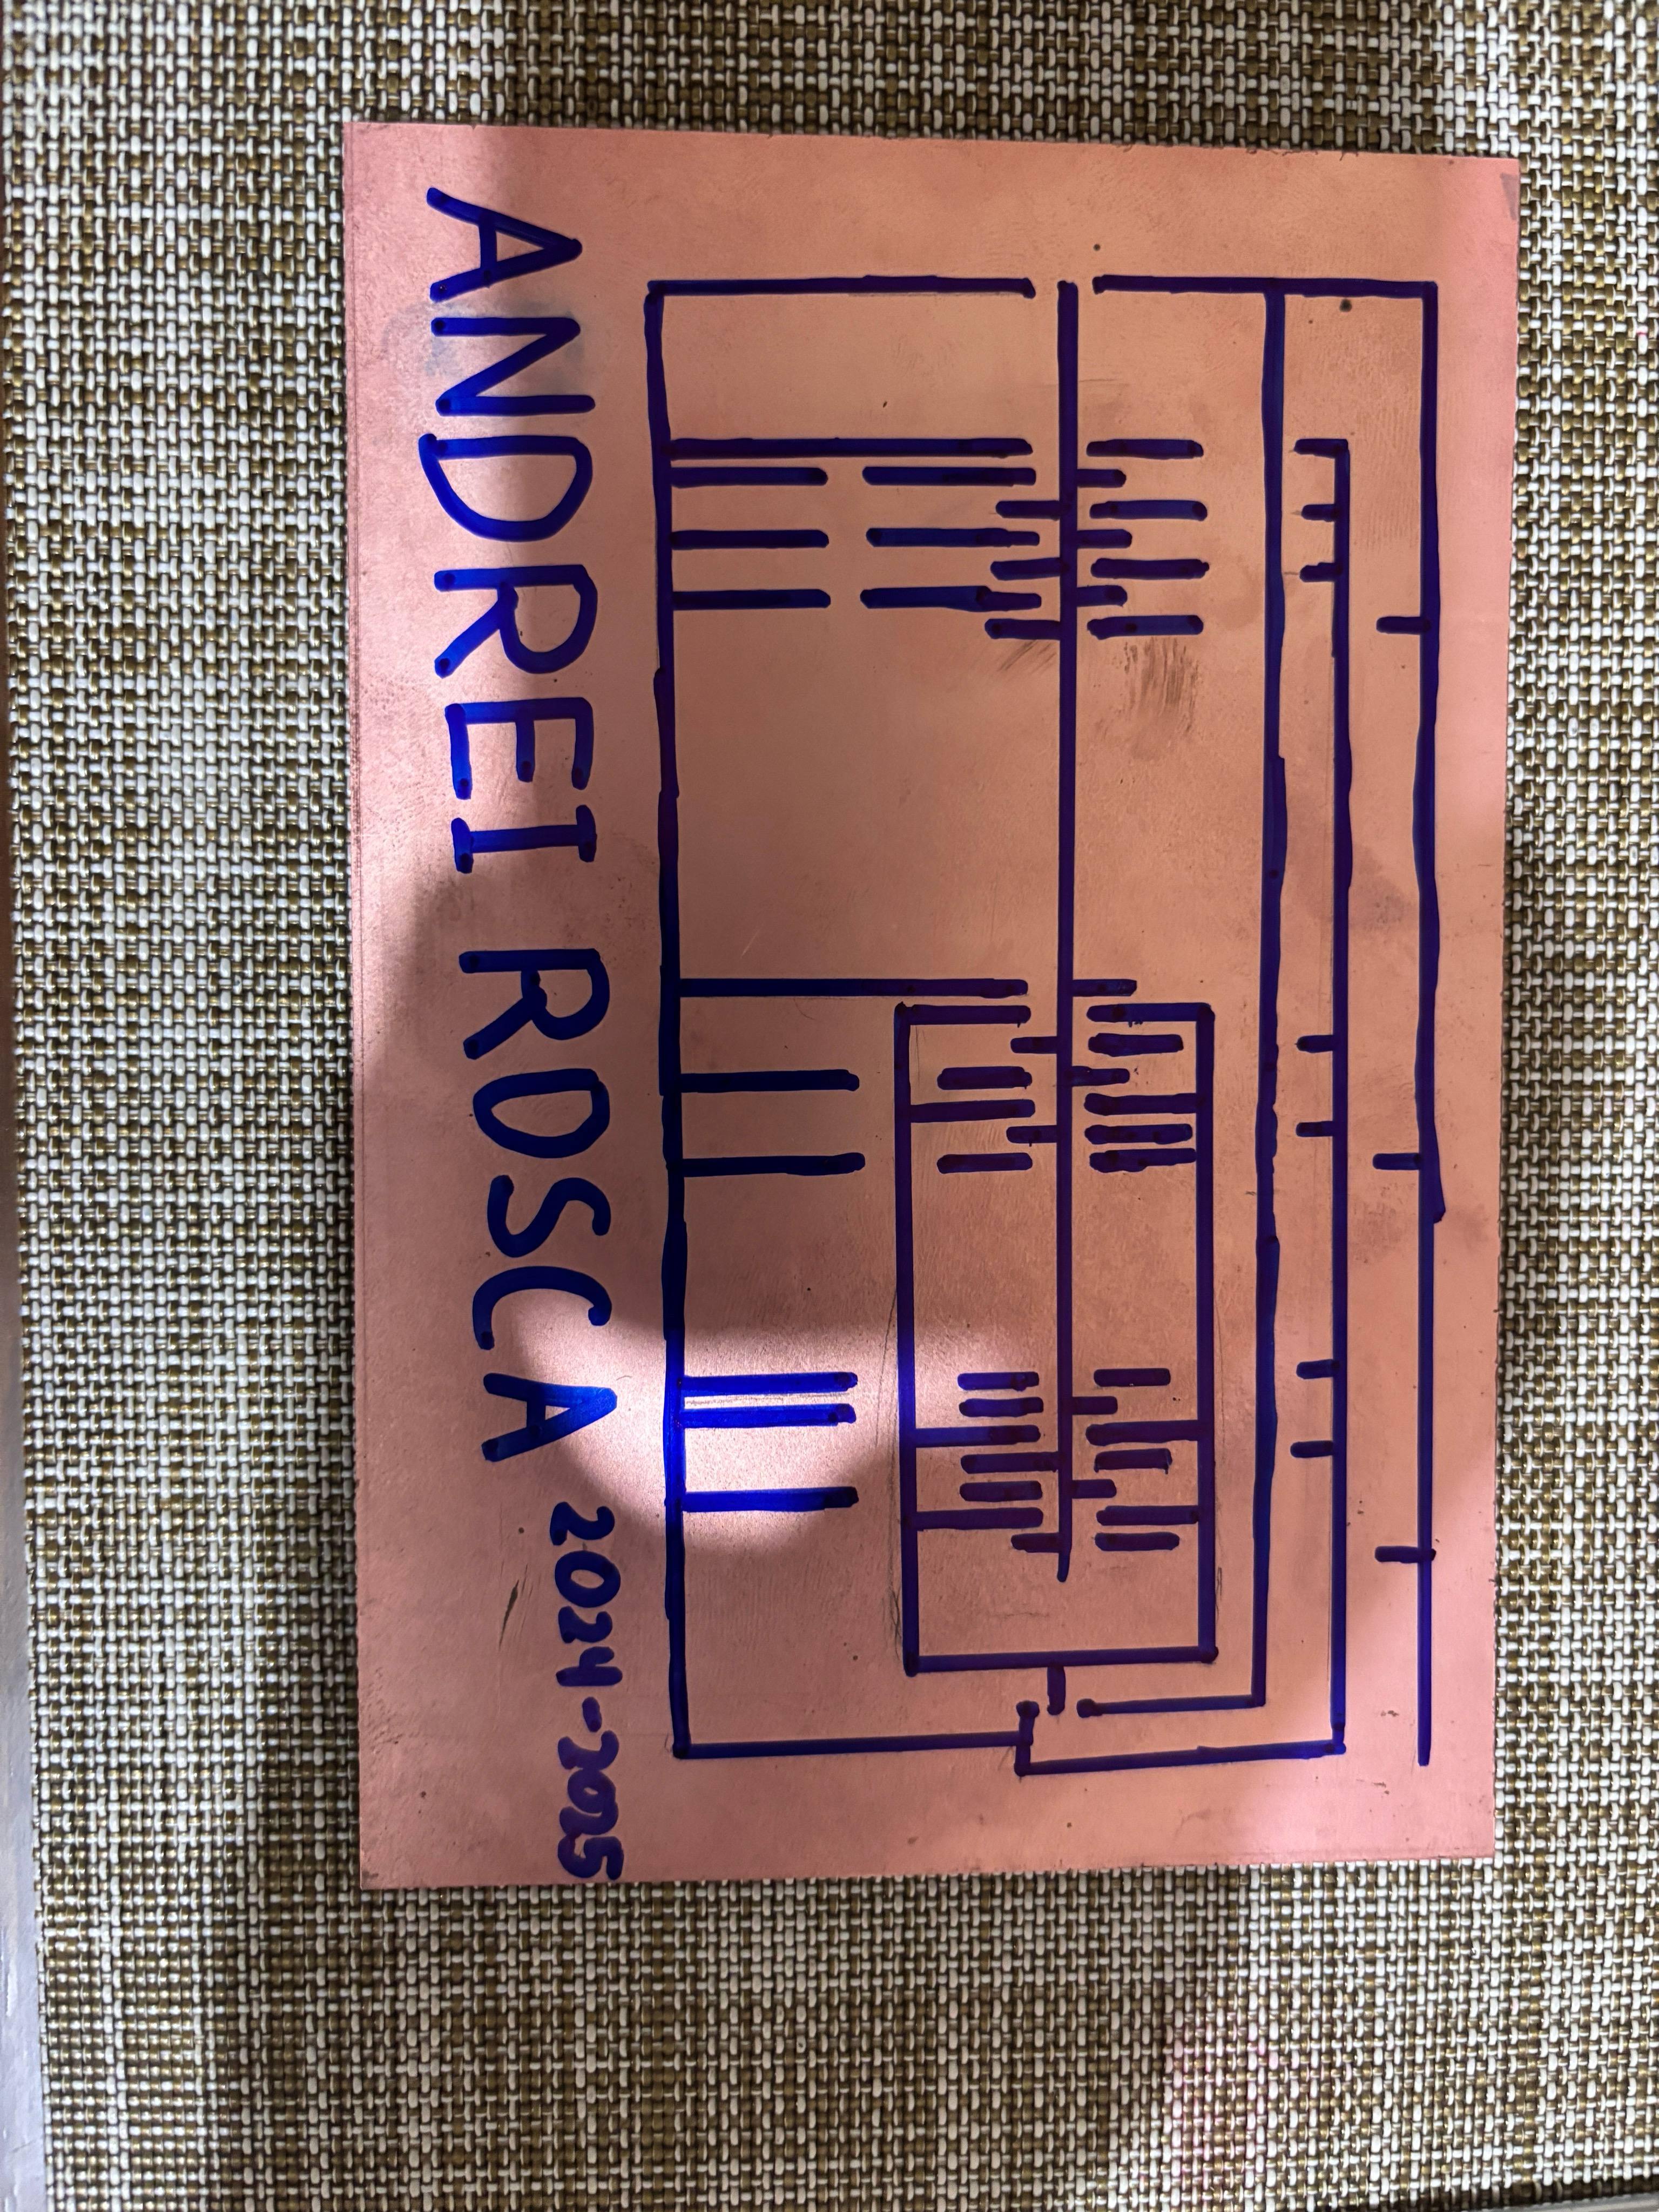 ANDREI ROSCA 2024-2025